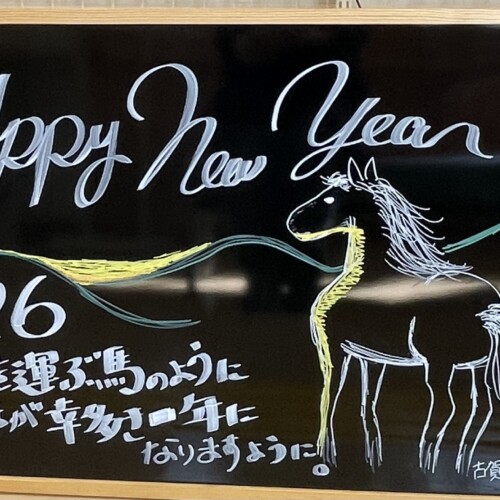 ppy New Year
26
運ぶ馬のように
が幸多き一年に
なりますように。
古賀